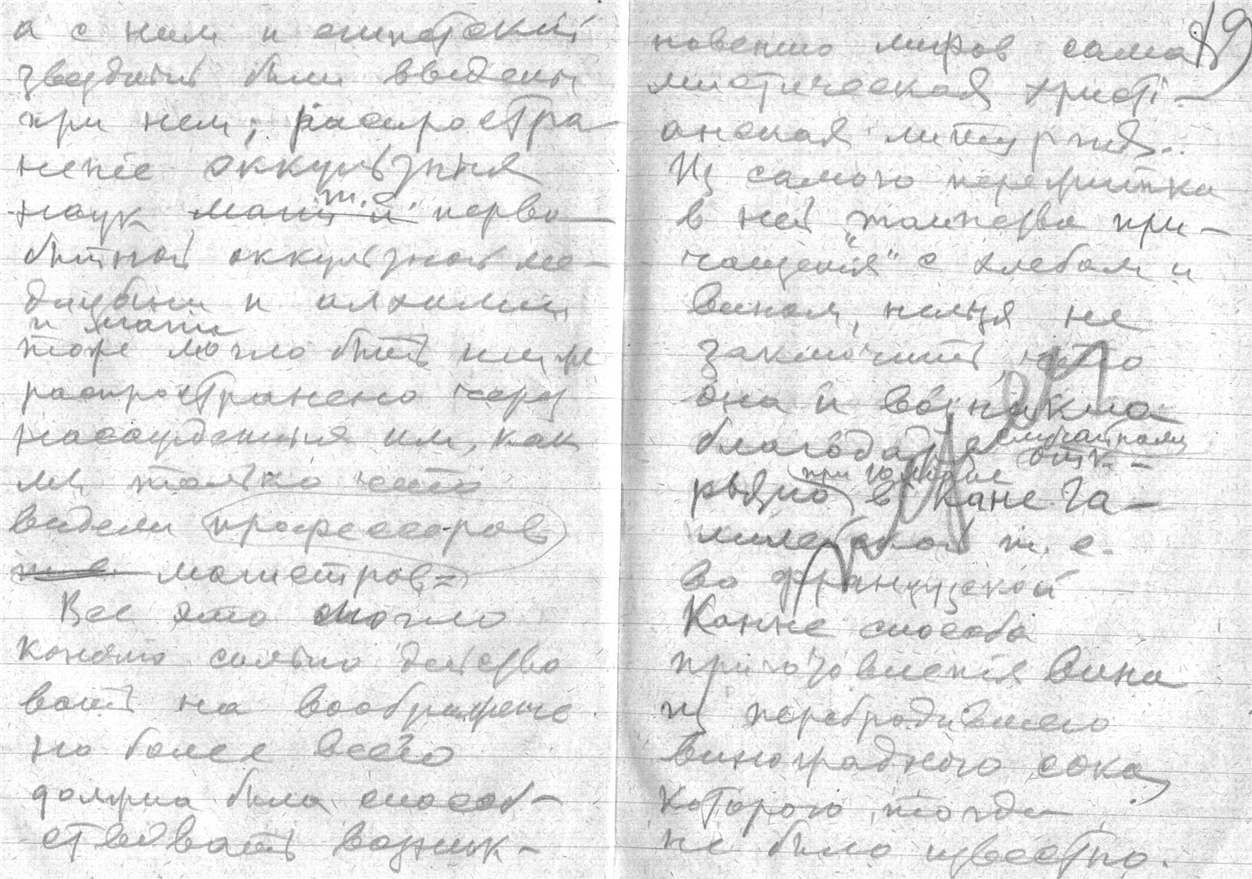 а с ним и египетский
звездный были введены
при нем; распростра
нение оккультных
наук т. е. перво-
бытной оккультной ме-
дицины и алхимии
и магии
тоже могло быть им же
распространено через
насаждения им, как
мы только что
видели профессоров
магистров
Все это могло
конечно сильно действо
вать на воображение
но более всего
должна была способ-
ствовать возник-
19
новению мифов сама
мистическая христi-
анская литургия..
Из самого пережитка
в ней „таинства при-
чащенiя" с хлебом и
вином, нельзя не
заключить, что
она и возникла
благодаря случайному
отк-
рытию при нем в Кане Га-
лилейской т. е.
во французской
Канне способа
приготовленiя вина
из перебродившего
виноградного сока,
которого тогда
не было известно.